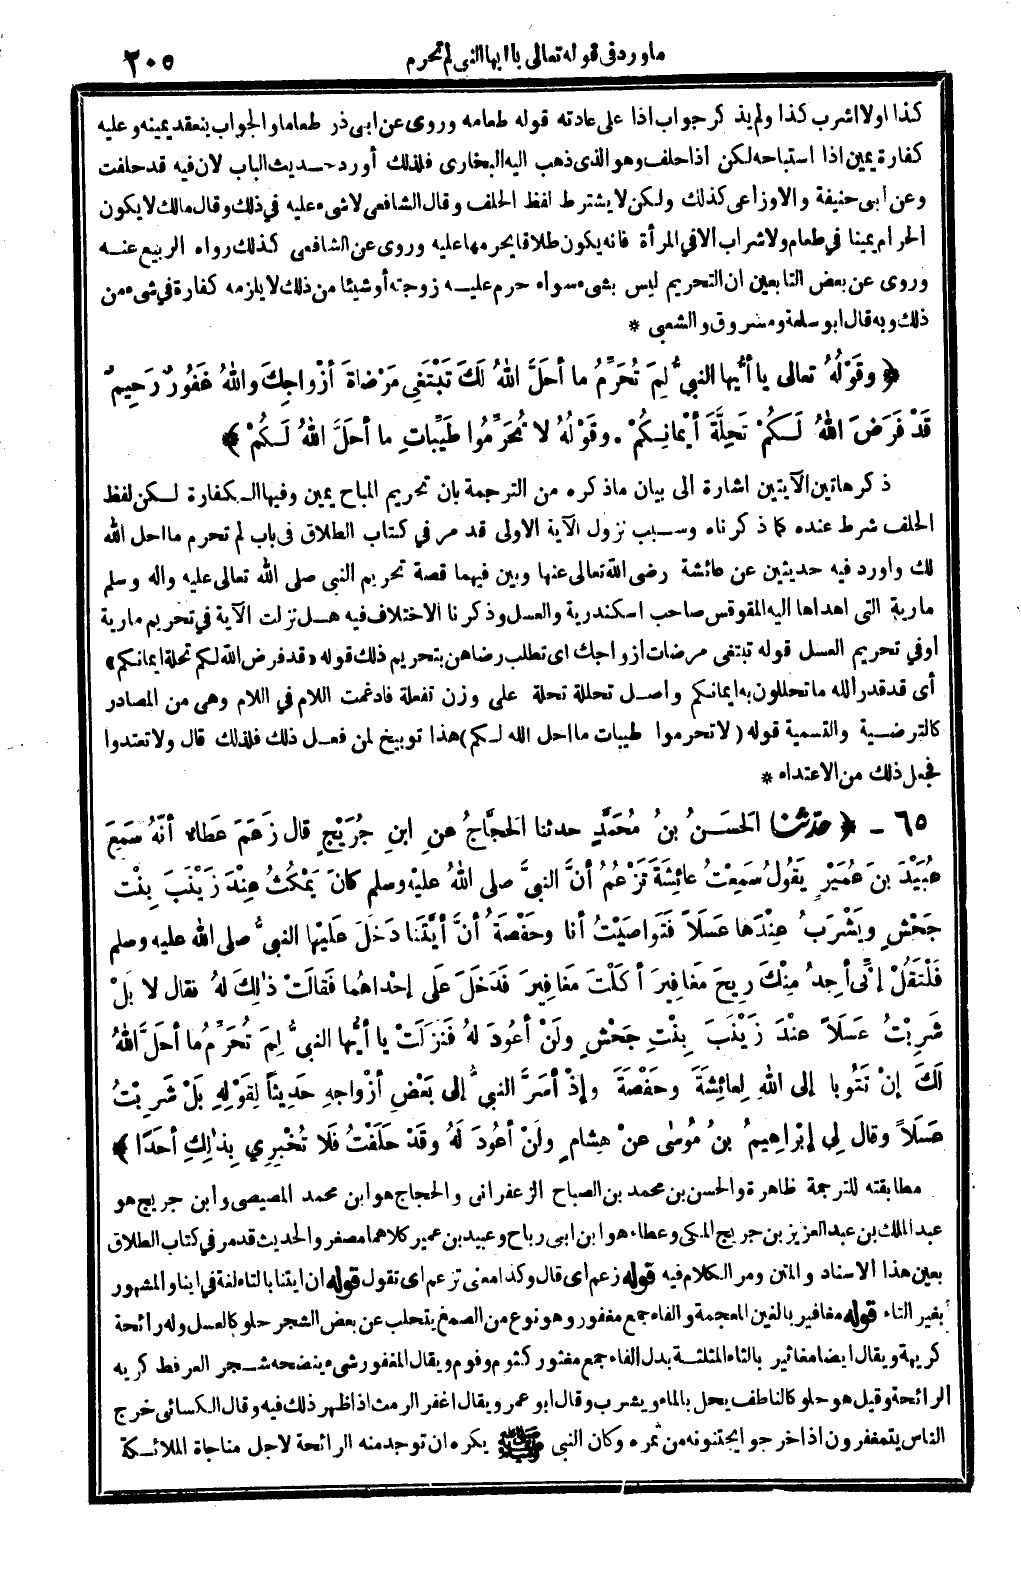 ما ورد في قوله تعالى يا ايها النبي لم تحرم
٢٠٥
كذا او لا اشرب كذا ولم يذكر جواب اذا على عادته قوله طعامه وروى عن ابى ذر طعاما والجواب ينعقد يمينه وعليه
كفارة يمين اذا استباحه لكن اذا حلف وهو الذى ذهب اليه البخارى فلذلك أورد حديث الباب لان فيه قد حلفت
وعن ابى حنيفة والاوزاعى كذلك ولكن لا يشترط لفظ الحلف وقال الشافعى لا شىء عليه في ذلك وقال مالك لا يكون
الحرام يمينا في طعام ولا شراب الا في المرأة فانه يكون طلاقا يحرمها عليه وروى عن الشافعى كذلك رواه الربيع عنه
وروى عن بعض التابعين ان التحريم ليس بشىء سواء حرم عليه زوجته أو شيئا من ذلك لا يلزمه كفارة في شىء من
ذلك وبه قال ابو سلمة ومسروق والشعبى *
﴿ وقَوْلُهُ تعالى يا أيُّها النبيُّ لِمَ تُحَرِّمُ ما أحَلَّ اللهُ لَكَ تَبْتَغِي مَرْضاةَ أزْواجِكَ واللهُ غَفُورٌ رَحِيمٌ
قَدْ فَرَضَ اللهُ لَكُمْ تَحِلَّةَ أيْمانِكُمْ . وقَوْلُهُ لا تُحَرِّمُوا طَيِّباتِ ما أحَلَّ اللهُ لَكُمْ ﴾
ذكر هاتين الآيتين اشارة الى بيان ما ذكره من الترجمة بان تحريم المباح يمين وفيها الكفارة لكن لفظ
الحلف شرط عنده كما ذكرناه وسبب نزول الآية الاولى قد مر في كتاب الطلاق فى باب لم تحرم ما احل الله
لك واورد فيه حديثين عن عائشة رضى الله تعالى عنها وبين فيهما قصة تحريم النبى صلى الله تعالى عليه واله وسلم
مارية التى اهداها اليه المقوقس صاحب اسكندرية والعسل وذكرنا الاختلاف فيه هل نزلت الآية في تحريم مارية
أو في تحريم العسل قوله تبتغى مرضات ازواجك اى تطلب رضاهن بتحريم ذلك قوله «قد فرض الله لكم تحلة ايمانكم»
أى قد قدر الله ما تحللون به ايمانكم وأصل تحلة تحللة على وزن تفعلة فادغمت اللام في اللام وهى من المصادر
كالترضية والتسمية قوله (لا تحرموا طيبات ما احل الله لكم) هذا توبيخ لمن فعل ذلك فلذلك قال ولا تعتدوا
فجعل ذلك من الاعتداء *
٦٥ - ﴿ حدثنا الحَسَنُ بنُ مُحَمَّدٍ حدثنا الحَجَّاجُ عنِ ابنِ جُرَيْجٍ قال زَعَمَ عَطاءٌ أنَّهُ سَمِعَ
عُبَيْدَ بنَ عُمَيْرٍ يَقُولُ سَمِعْتُ عائِشَةَ تَزْعُمُ أنَّ النبيَّ صلى اللهُ عليْه وسلم كانَ يَمْكُثُ عِنْدَ زَيْنَبَ بِنْتِ
جَحْشٍ ويَشْرَبُ عِنْدَها عَسَلاً فَتَواصَيْتُ أنا وحَفْصَةُ أنَّ أيَّتَنا دَخَلَ عَلَيْها النبيُّ صلى الله عليه وسلم
فَلْتَقُلْ إنِّي أجِدُ مِنْكَ رِيحَ مَغافِيرَ أكَلْتَ مَغافِيرَ فَدَخَلَ عَلَى إحْداهُما فَقالَتْ ذٰلِكَ لَهُ فقال لا بَلْ
شَرِبْتُ عَسَلاً عنْدَ زَيْنَبَ بِنْتِ جَحْشٍ ولَنْ أعُودَ لَهُ فَنَزَلَتْ يا أيُّها النبيُّ لِمَ تُحَرِّمُ ما أحَلَّ اللهُ
لَكَ إنْ تَتُوبا إلى اللهِ لِعائِشَةَ وحَفْصَةَ وإذْ أسَرَّ النبيُّ إلى بَعْضِ أزْواجِهِ حَدِيثاً لِقَوْلِهِ بَلْ شَرِبْتُ
عَسَلاً وقال لِي إبْراهِيمُ بنُ مُوسَى عنْ هِشامٍ ولَنْ أعُودَ لَهُ وقَدْ حَلَفْتُ فَلا تُخْبِرِي بِذٰلِكِ أحَدًا ﴾
مطابقته للترجمة ظاهرة والحسن بن محمد بن الصباح الزعفرانى والحجاج هو ابن محمد المصيصى وابن جريج هو
عبد الملك بن عبد العزيز بن جريج المكى وعطاء هو ابن ابى رباح وعبيد بن عمير كلاهما مصغر والحديث قد مر في كتاب الطلاق
بعين هذا الاسناد والمتن ومر الكلام فيه قوله زعم اى قال وكذا معنى تزعم اى تقول قوله ان ايتنا بالتاء لغة في اينا والمشهور
بغير التاء قوله مغافير بالغين المعجمة والفاء جمع مغفور وهو نوع من الصمغ يتحلب عن بعض الشجر حلو كالعسل وله رائحة
كريهة ويقال ايضا مغاثير بالثاء المثلثة بدل الفاء جمع مغثور كثوم وفوم ويقال المغفور شىء ينضحه شجر العرفط كريه
الرائحة وقيل هو حلو كالناطف يحل بالماء ويشرب وقال ابو عمر ويقال اغفر الرمث اذا ظهر ذلك فيه وقال الكسائى خرج
الناس يتمغفرون اذا خرجوا يجتنونه من ثمره وكان النبى ﷺ يكره ان توجد منه الرائحة لاجل مناجاة الملائكة